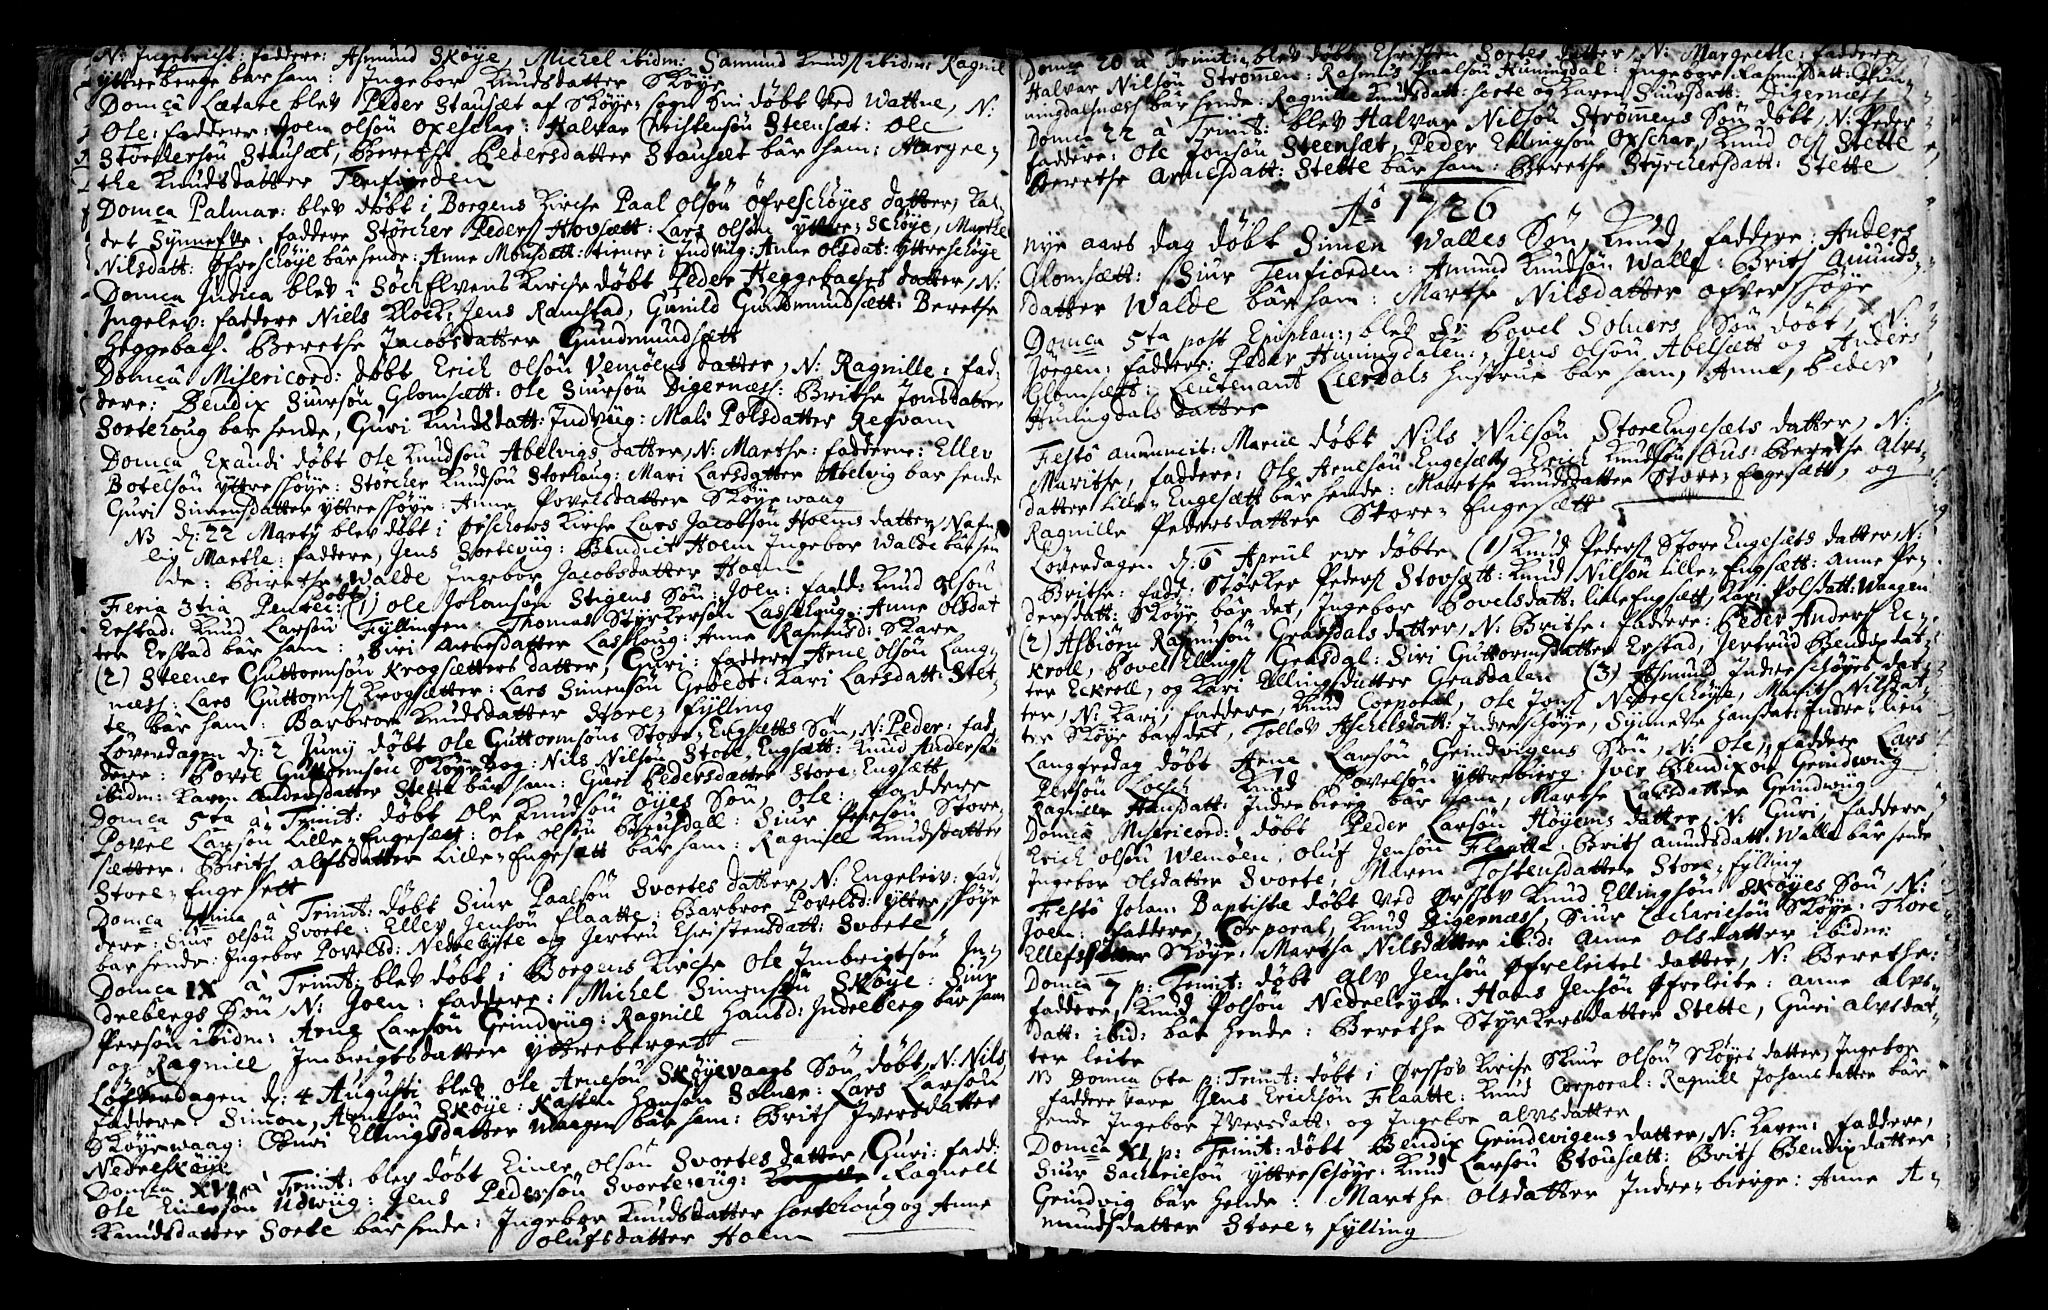 N: Ingebricht: faddere: Asmund Skøye, Michel ibidm: Samund Knuds ibidm: Ragnil
yttreberge bar ham: Ingebor Knudsdatter Skøye
Domca Lætare blev Peder Stausæt af Skøye sogn døbt ved Wattne, N:
Ole: faddere: Joen olsøn oxeschar: Halvar Christensøn Steensæt: Ole
Størchersøn Stausæt, Berethe Pedersdatter Stausæt bar ham: Margre-
the Knudsdatter Tenfiorden
Domca Palmar: blev døbt i Borgens Kirche Paal olsøn øfreschøyes datter, kal
det Synneve: faddere Størcher Peders Hovsætt: Lars olsøn yttre Schøye, Marthe
Nilsdatt: øfreschøye bar hende: Anne Monsdatt: tiener i Indviig: Anne olsdat: yttreschøye
Domca Judica blev i Søchelvens Kirche døbt Peder Heggebachs datter, N:
Ingelev: faddere Niels Klock: Jens Ramstad, Gunild Gundmundsætt: Berethe
Heggebach. Berethe Jacobsdatter Gundmundsætt
Domca Misericord: døbt Erich olsøn Vemøens datter, N: Ragnille: fad-
dere: Bendix Siursøn Glomsætt: Ole Siursøn Digernæss: Brithe Jonsdatter
Sortehoug bar hende, Guri Knudsdatt: Indviig: Mali Polsdatter Refvam
Domca Exaudi døbt Ole Knudsøn Abelvigs datter, N: Marthe: faddere: Ellev
Botelsøn yttre skøye: Størcher Knudsøn Storhaug: Mari Larsdatter Abelvig bar hende
Guri Simensdatter yttreskøye: Anne Povelsdatter Skøyewaag
NB d: 22 Marty blev døbt i ørschows Kirche Lars Jacobsøn Holms datter, Nafn-
lig Marthe: faddere, Jens Svorteviig: Bendict Holm Ingebor Walde bar hen
de: Berethe Walde Ingebor Jacobsdatter Holm
Feria 3tia Pentec: døbt (1) ole Johansøn Stigens Søn: Joen: fadd: Knud olsøn
Erstad: Knud Larsøn Fyllingen: Thomas Styrkersøn Lasshoug: Anne olsdat
ter Erstad bar ham: Siri Arnesdatter Lasshoug: Anne Rasmusd: Skare
(2) Steener Guttormsøn Krogsætters datter, Guri: faddere Arne olsøn Lang-
næss: Lars Guttorms Krogsætter: Lars Simensøn Gebedt: Kari Larsdatt: Stet-
te bar ham: Barbroe Knudsdatter Store-Fylling
Løverdagen d: 2 Juny døbt Ole Guttormsøns Store-Engsetts Søn, N: Peder: fad
dere: Povel Guttormsøn Skøyeskog: Nils Nilsøn Store Engsætt: Knud Andersøn
ibidm: Karen Andersdatter Stette bar ham: Guri Pedersdatter Store Engsætt
Domca 5ta à Trinit: døbt Ole Knudsøn øyes Søn, Ole: faddere
Povel Larsøn Lille-Engesætt: Ole olsøn Brusdall: Siur Persøn Store
sætter. Brith Alfsdatter Lille-Engesætt bar ham: Ragnill Knudsdatter
Store-Engesett
Domca à Trinit: døbt Siur Paalsøn Svortes datter, N: Engeleiv: fad,
dere: Siur olsøn Svorte: Ellev Jensøn Flaatte: Barbroe Povelsd: yttre skøye
bar hende: Ingebor Povelsd: Nedreleite og Jertru Christensdatt: Svorte
Domca IX à Trinit: blev døbt i Borgens Kirche Ole Imbrigtsøn In-
drebergs Søn, N: Joen: faddere: Michel Simensøn Skøye: Siur
Persøn ibidm: Arne Larsøn Grindviig: Ragnill Hansd: Indreberg bar ham
og Ragnill Imbrigtsdatter Yttreberget
Løfverdagen d: 4 Augusti blev Ole Arnesøn Skøyevaags Søn døbt, N: Nils
faddere Simon, Arnesøn Skøye: Kasten Hansøn Solner: Lars Larsøn
Skøyewaag: Guri Ellingsdatter Waagen bar ham: Brith Iversdatter
Nedreskøye
Domca XVI à Trinit: blev døbt Einer olsøn Svortes datter, Guri: fadd:
Ole Einersøn Udwiig: Jens Pedersøn Svorteviig: Ragnell
Knudsdatter Sorte bar hende: Ingebor Knudsdatter Sortehoug og Anne
olufsdatter Holm
Domca 20 à Trinit: blev døbt Christen Sortes datter, N: Margrethe: faddere
Halvar Nilsøn Strømen: Rasmus Paalsøn Huningdal: Ingebor Rasmusdatt: Hun-
ningdalnæss bar hende: Ragnille Knudsdatt: Sorte og Karen Siursdatt: Digernæss
Domca 22 à Trinit: blev Halvar Nilsøn Strømmens Søn døbt, N: Peder
faddere: Ole Jonsøn Steensæt, Peder Ellingsøn Oxschar, Knud Ols Stette
Berethe Arnesdatt: Stette bar ham: Berethe Styrchersdatt: Stette
Ao 1726
nye aars dag døbt Simen Walles Søn, Knud, faddere: Anders
Glomsætt: Siur Tenfiorden: Amund Knudsøn Walle: Brith Amunds-
datter Walde bar ham: Marthe Nilsdatter ofverskøye
Domca 5ta post Epiphan: blev Sr Povel Solners Søn døbt, N:
Jørgen: faddere: Peder Huningdalen: Jens olsøn Abelsætt og Anders
Glomsætt: Leutenant Leerdals hustrue bar ham, Anne, Peder
Huningdals datter
Festo annunciat: Mariæ døbt Nils Nilsøn StoreEngesæts datter, N:
Marithe, faddere: Ole Arnesøn Engesætt, Erich Knudsøn Ous: Berethe Alvs-
datter Lille-Engesætt bar hende: Marthe Knudsdatter Store-Engesætt, og
Ragnille Pedersdatter Store-Engesætt
Løverdagen d: 6 Apriil ere døbte (1) Knud Peders Store Engesæts datter, N:
Brithe: fadd: Størker Peders Stovsætt: Knud Nilsøn Lille-Engsætt: Anne Pe-
dersdatt: Skøye bar det, Ingebor Povelsdatt: lille Engsætt, Kari Polsdatt: Waagen
(2) Asbiørn Rasmusøn Grasdals datter, N: Brithe: faddere: Peder Anders Ec-
kroll, Povel Ellings Grasdal: Siri Guttormsdatter Erstad, Jertrud Bendixdat-
ter Eckroll, og Kari Ellingsdatter Grasdalen (3) Asmund Indreschøyes dat-
ter, N: Kari, faddere, Knud Corporal, Ole Jons Nedreschøye, Marith Nilsdat-
ter Skøye bar det, Tollov Aschelsdatt: Indreschøye, Synneve Hansdat: Indre-lien
Langfredag døbt Arne Larsøn Grindvigens Søn, N: Ole, faddere Lars
Persøn Knud Povelsøn Yttrebierg. Iver Bendixøn Grindwiig
Ragnille Hansdatt: Indrebierg bar ham, Marthe Larsdatter Grindwiig
Domca Misericord: døbt Peder Larsøn Høyems datter, N: Guri, faddere
Erich olsøn Wemøen, Oluf Jensøn Flaatte: Brith Amundsdatt: Walle bar hende
Ingebor olsdatter Svorte, Maren Tostensdatter Store-Fylling
Festo Johan: Baptistæ døbt ved Ørskov Knud Ellingsøn Skøyes Søn, N:
Joen: faddere, Corporal, Knud Digernæss, Siur Zachariesøn Skøye: Thore
Ellefs Skøye: Martha Nilsdatter ibid: Anne Olsdatter ibidm:
Domca 7 p: Trinit: døbt Alv Jensøn Øfreleites datter, N: Berethe:
faddere, Knud Polsøn Nedreleyte: Hans Jensøn Øfreleite: Anne Alvs-
datt: ibid: bar hende: Berethe Styrkersdatter Stette, Guri Alvsdat-
ter leite
NB Domca 6ta p: Trinit: døbt i Ørsskov Kirche Skiur Olsøn Skøyes datter, Ingebor
faddere vare Jens Erichsøn Flaatte: Knud Corporal: Ragnill Johansdatter bar
hende Ingebor Iversdatt: og Ingebor Alvsdatter
Domca XI p: Trinit: døbt Bendix Grindevigens datter, N: Karen: faddere,
Siur Sachariesøn Yttreschøye: Knud Larsøn Stousætt: Brith Bendixdatter
Grindvig bar hende: Marthe Olsdatter Indre-bierge: Anne A-
mundsdatter Store-Fylling